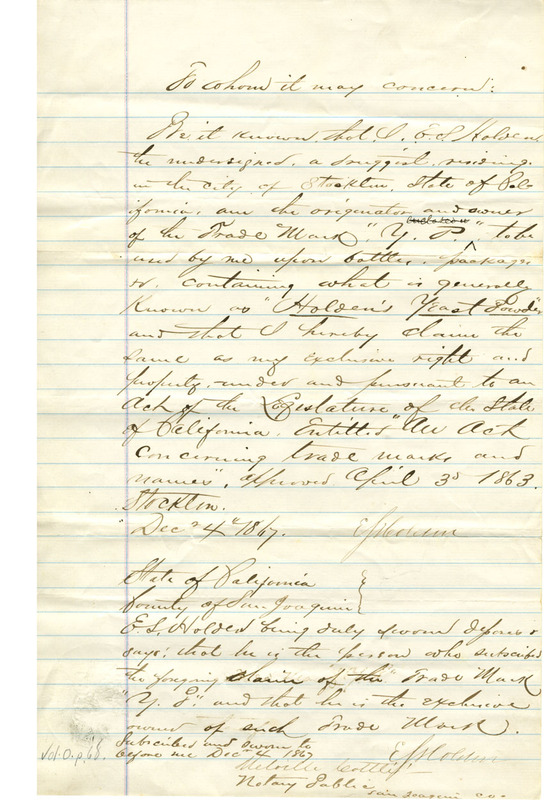 To whom it may concern:
Be it known, that I, E. S. Holden
the undersigned, a druggist, residing
in the city of Stockton, State of Cal-
ifornia, am the originator and owner
of the Trade Mark, "Y. P.", to be
used by me upon bottles, packages
&c. containing what is generally
Known as "Holden's Yeast Powder"
and that I hereby claim the
same as my exclusive right and
property, under and pursuant to an
Act of the Legislature of the State
of California, Entitled "An Act
concerning trade marks and
names", approved April 3d 1863.
Stockton.
Dec 4th 1867. E S Holden
State of California
County of San Joaquin
E. S. Holden being duly sworn deposes &
says; that he is the person who subscribed
the forgoing claim of the Trade Mark
"Y. P." and that he is the exclusive
owner of such Trade Mark.
Subscribed and sworn to
before me Dec 4 1867 E S Holden
Melville Cottle
Notary Public
San Joaquin Co.
Vol. D. p. 68.